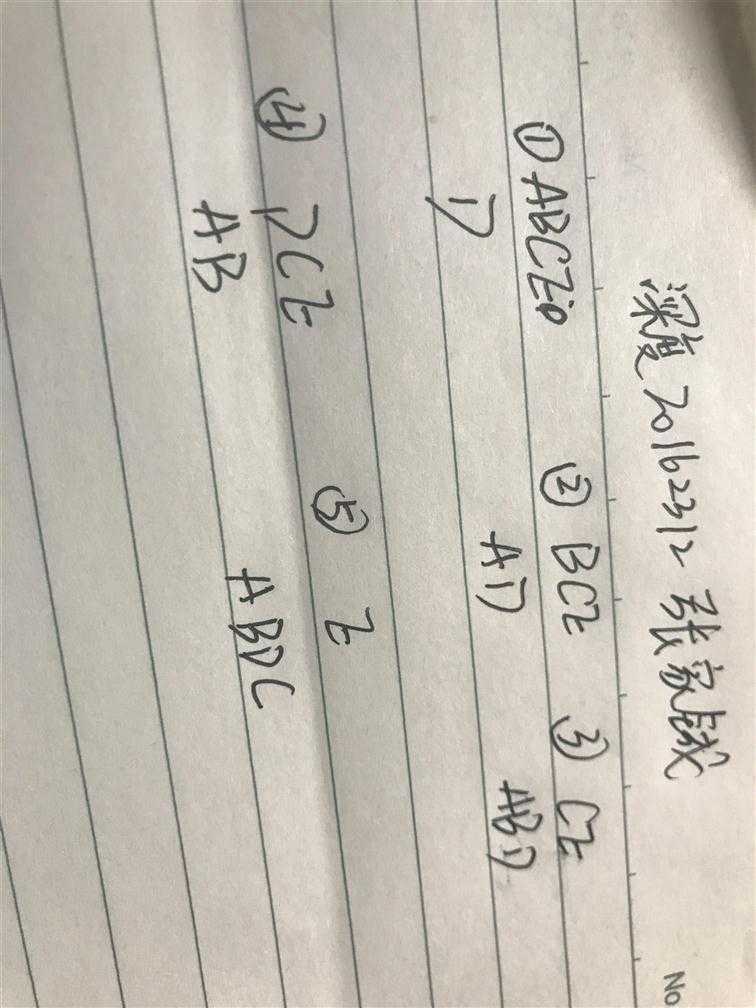 深度 20162312 张家铖
① ABCED ② BCE ③ CE
D AD ABD
④ DCE ⑤ E
AB ABDC
No